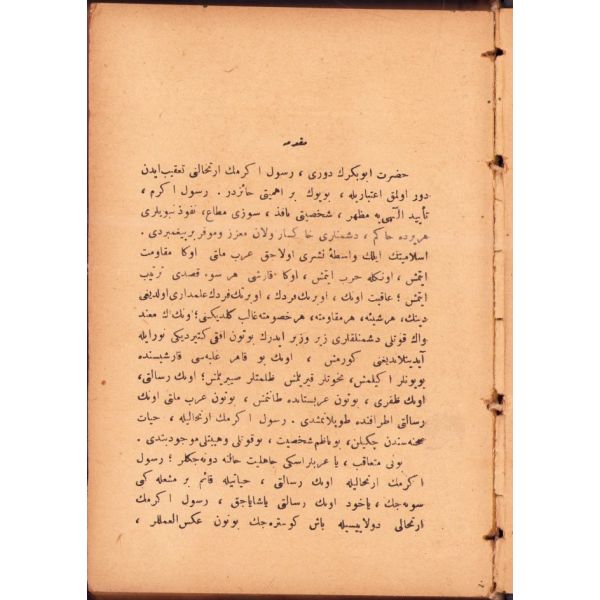 مقدمه
حضرت ابوبكرك دورى ، رسول اكرمك ارتحالنى تعقيب ايدن
دور اولمق اعتباريله ، بويوك بر اهميتى حائزدر . رسول اكرم ،
تأييد الٓهىيه مظهر ، شخصيتى نافذ ، سوزى مطاع ، نفوذ نبويلرى
هريرده حاكم ، دشمنلرى خاكسار اولان معزز وموقر برپيغمبردى .
اسلاميتك ايلك واسطۀ نشرى اولاجق عرب ملتى اوكا مقاومت
ايتمش ، اونكله حرب ايتمش ، اوكا قارشى هر سوء قصدى ترتيب
ايتمش ؛ عاقبت اونك ، اوبرتك فردك ، اوبرتك فردك علمدارى اولديغى
دينك، هرشيئه، هرمقاومته، هرخصومته غالب كلديكنى؛ اونك اك معند
واك قوتلى دشمنلقلارى زير وزبر ايدرك بوتون افقى كتيرديكى نورايله
آيدينلاتديغنى كورمش ، اونك بو قاهر غلبه‌سى قارشيسنده
بويونلر اكيلمش، نخوتلر قيريلمش ظلمتلر صيريلمش؛ اونك رسالتى،
اونك ظفرى ، بوتون عربستانده طانتمش ، بوتون عرب ملتى اونك
رسالتى اطرافنده طوپلانمشدى . رسول اكرمك ارتحاليله ، حيات
صحنه‌سندن چكيلن، بوناظم شخصيت ، بوقوتلى وهيبتلى موجوديتدى .
بونى متعاقب ، يا عربلر اسكى جاهليت حالنه دونه‌جكلر ؛ رسول
اكرمك ارتحاليله اونك رسالتى ، حياتيله قائم بر مشعله كبى
سونه‌جك، ياخود اونك رسالتى ياشاياجق ، رسول اكرمك
ارتحالى دولاييسيله باش كوستره‌جك بوتون عكس العمللر ،